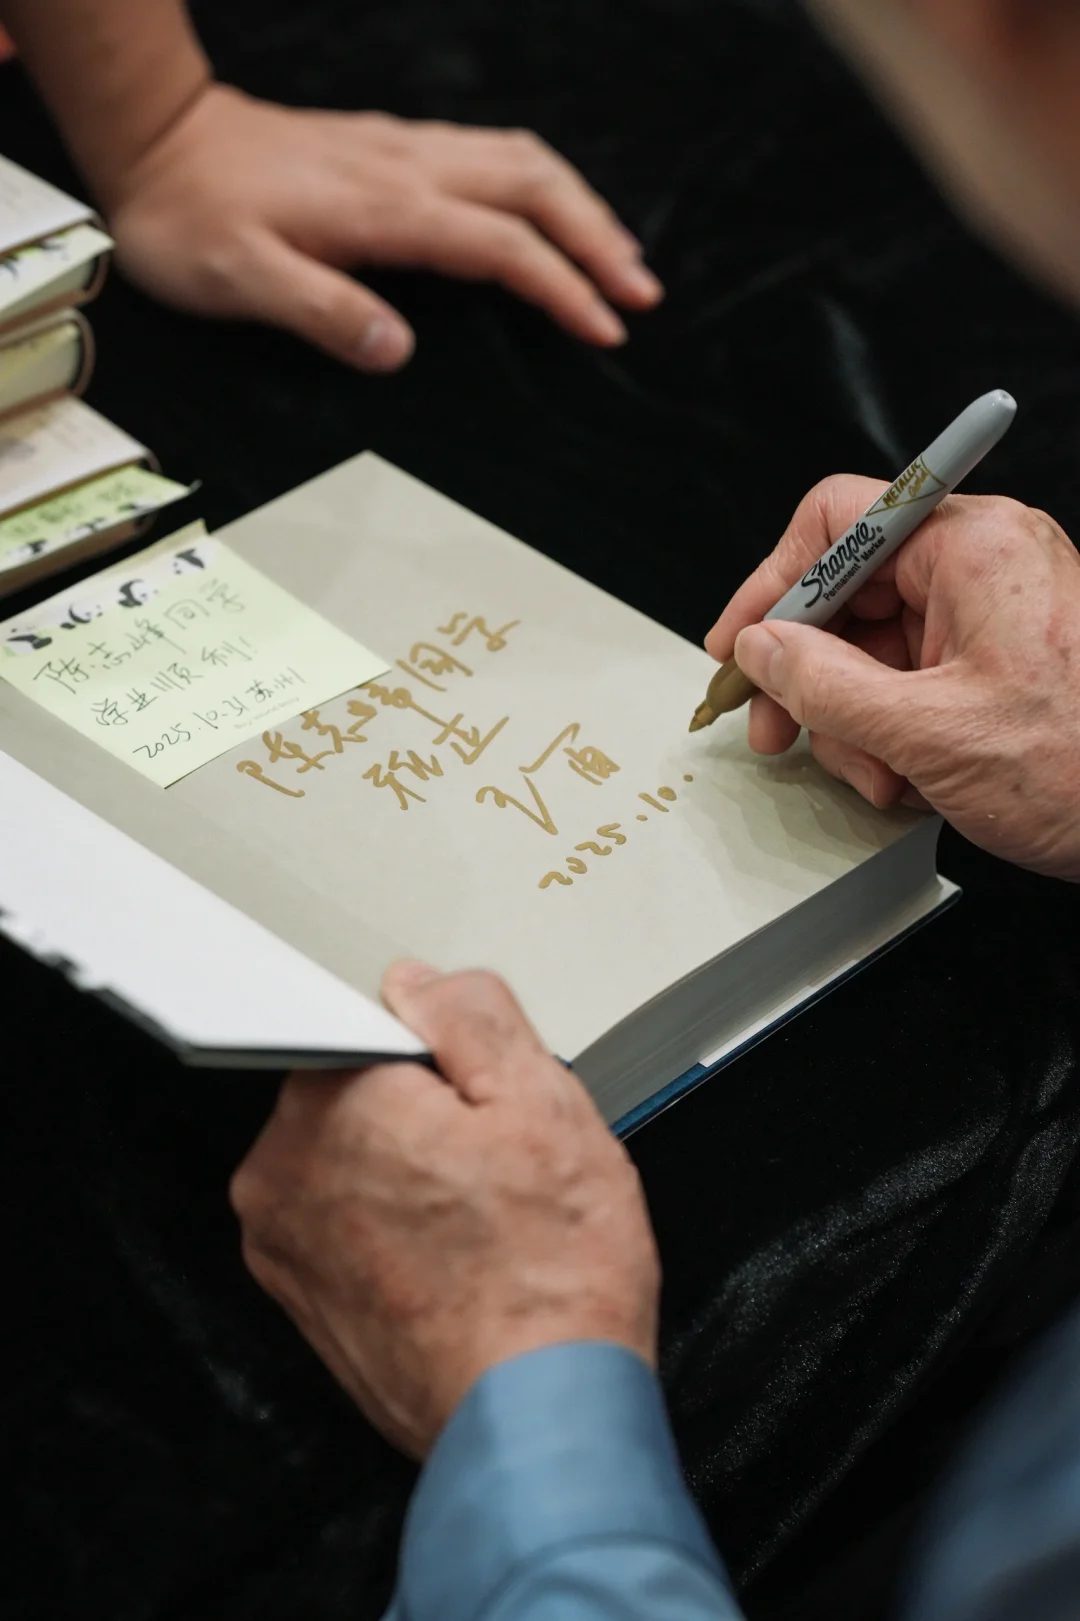 陈志峰同学
学业顺利!
2025.10.31 苏州
陈志峰同学
雅正
2025.10.
METALLIC
Gold
Sharpie
Permanent Marker